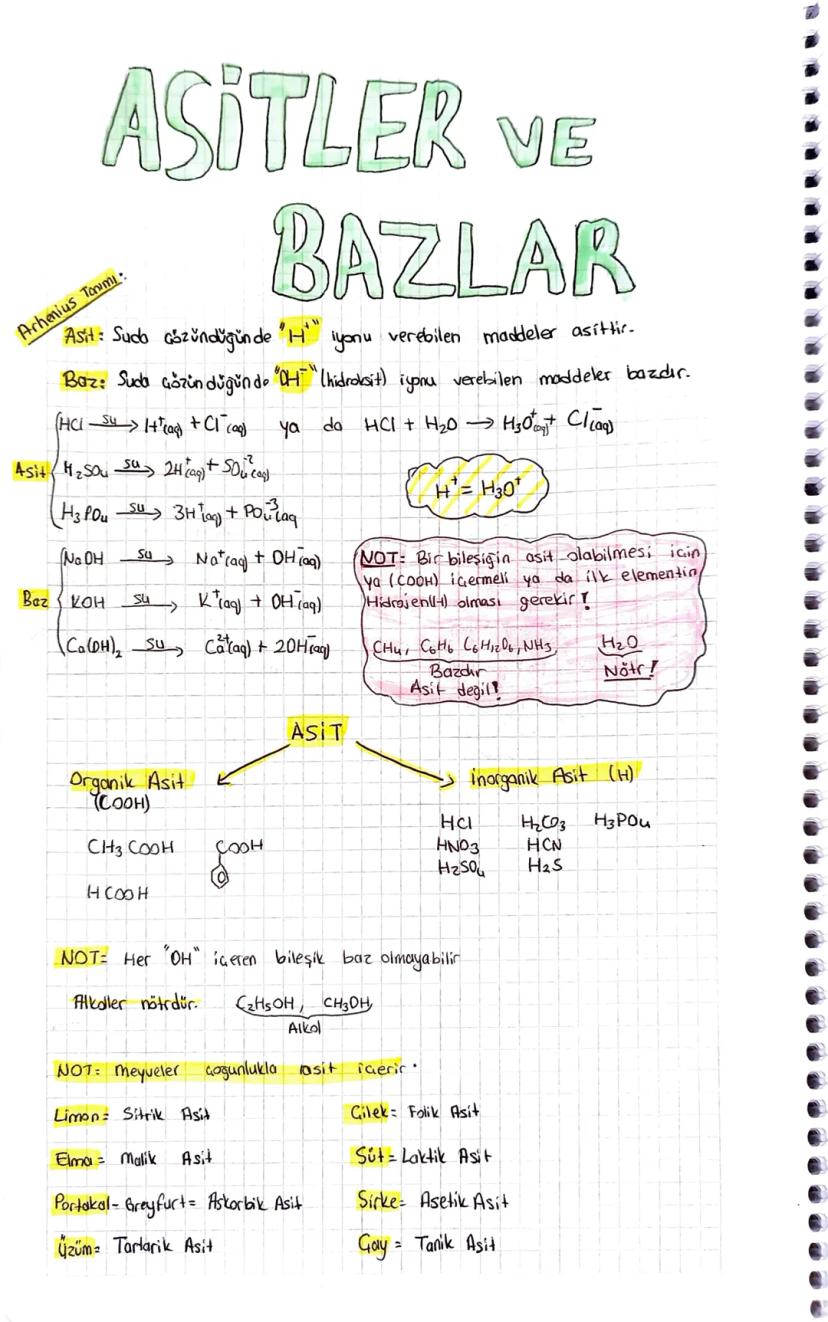 ASİTLER VE
BAZLAR
Arhenius Tanımı:
Asit: Suda çözündüğünde "H⁺" iyonu verebilen maddeler asittir.
Baz: Suda çözündüğünde "OH⁻" (hidroksit) iyonu verebilen maddeler bazdır.
Asit
HCl su→ H⁺(aq) + Cl⁻(aq) ya da HCl + H₂O → H₃O⁺(aq) + Cl⁻(aq)
H₂SO₄ su→ 2H⁺(aq) + SO₄⁻²(aq)
H₃PO₄ su→ 3H⁺(aq) + PO₄⁻³(aq
H⁺ = H₃O⁺
Baz
NaOH su→ Na⁺(aq) + OH⁻(aq)
KOH su→ K⁺(aq) + OH⁻(aq)
Ca(OH)₂ su→ Ca²⁺(aq) + 2OH⁻(aq)
NOT: Bir bileşiğin asit olabilmesi için
ya (COOH) içermeli ya da ilk elementin
Hidrojen(H) olması gerekir!
CH₄, C₆H₆ C₆H₁₂O₆, NH₃ H₂O
Bazdır Nötr!
Asit değil!
ASİT
Organik Asit
(COOH)
CH₃COOH COOH
HCOOH
İnorganik Asit (H)
HCl H₂CO₃ H₃PO₄
HNO₃ HCN
H₂SO₄ H₂S
NOT= Her "OH" içeren bileşik baz olmayabilir
Alkoller nötrdür. C₂H₅OH, CH₃OH
Alkol
NOT: Meyveler çoğunlukla asit içerir.
Limon= Sitrik Asit Çilek= Folik Asit
Elma= Malik Asit Süt= Laktik Asit
Portakal-Greyfurt= Askorbik Asit Sirke= Asetik Asit
Üzüm= Tartarik Asit Çay= Tanik Asit